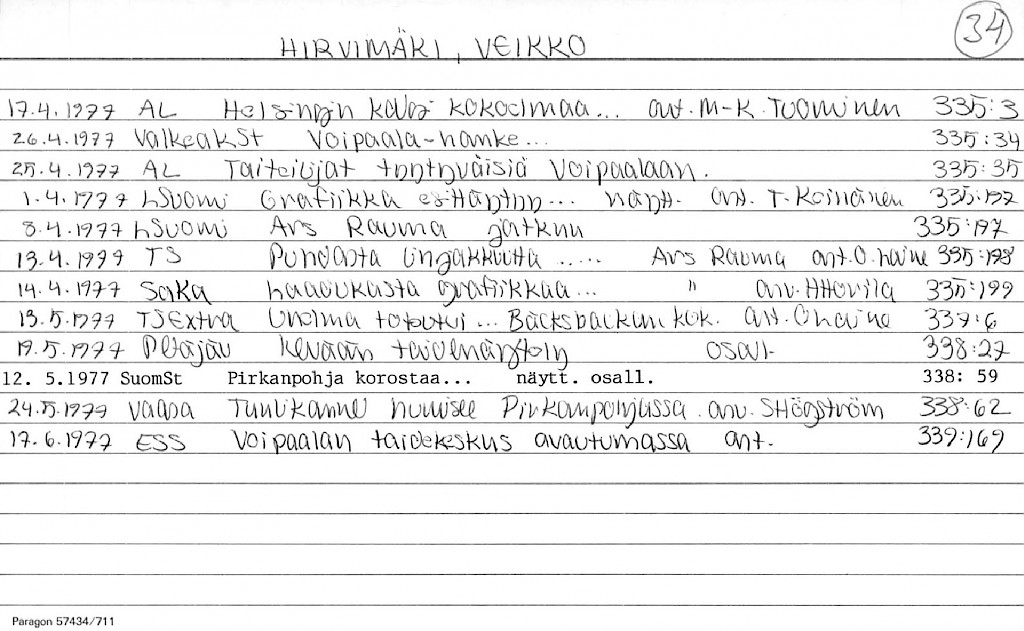 34
HIRVIMÄKI, VEIKKO
17.4.1977 AL Helsingin kaksi kokoelmaa... arv. M-K. Tuominen 335:3
26.4.1977 ValkeakSt Voipaala-hanke... 335:34
25.4.1977 AL Taiteilijat tyytyväisiä Voipaalaan. 335:35
1.4.1977 LSuomi Grafiikka esittäytyy... näytt. arv. T. Keinänen 335:192
8.4.1977 LSuomi Ars Rauma jatkuu 335:197
13.4.1977 TS Punaista Ars Rauma arv. O. Laine 335:198
14.4.1977 SaKa Laadukasta grafiikkaa... " arv. H Hovila 335:199
13.5.1977 TSExtra Unelma toteutui... Bäcksbackan kok. arv. O Laine 337:6
19.5.1977 Petäjäv Kevään taidenäyttely osall. 338:27
12. 5.1977 SuomSt Pirkanpohja korostaa... näytt. osall. 338: 59
24.5.1977 Vaasa Tuulikannel humisee Pirkanpohjassa. arv. S Högström 338:62
17.6.1977 ESS Voipaalan taidekeskus avautumassa art. 339:169
Paragon 57434/711